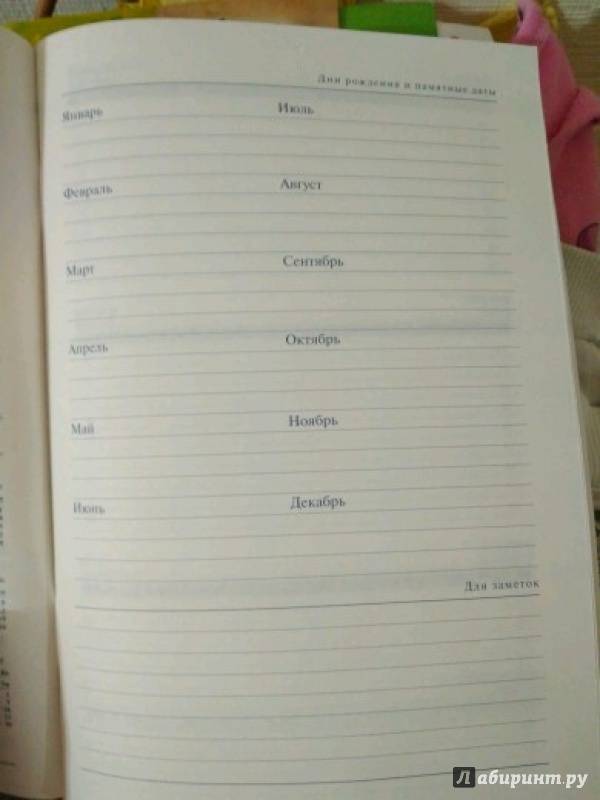 Дни рождения и памятные даты
Январь Июль
Февраль Август
Март Сентябрь
Апрель Октябрь
Май Ноябрь
Июнь Декабрь
Для заметок
Лабиринт.ру